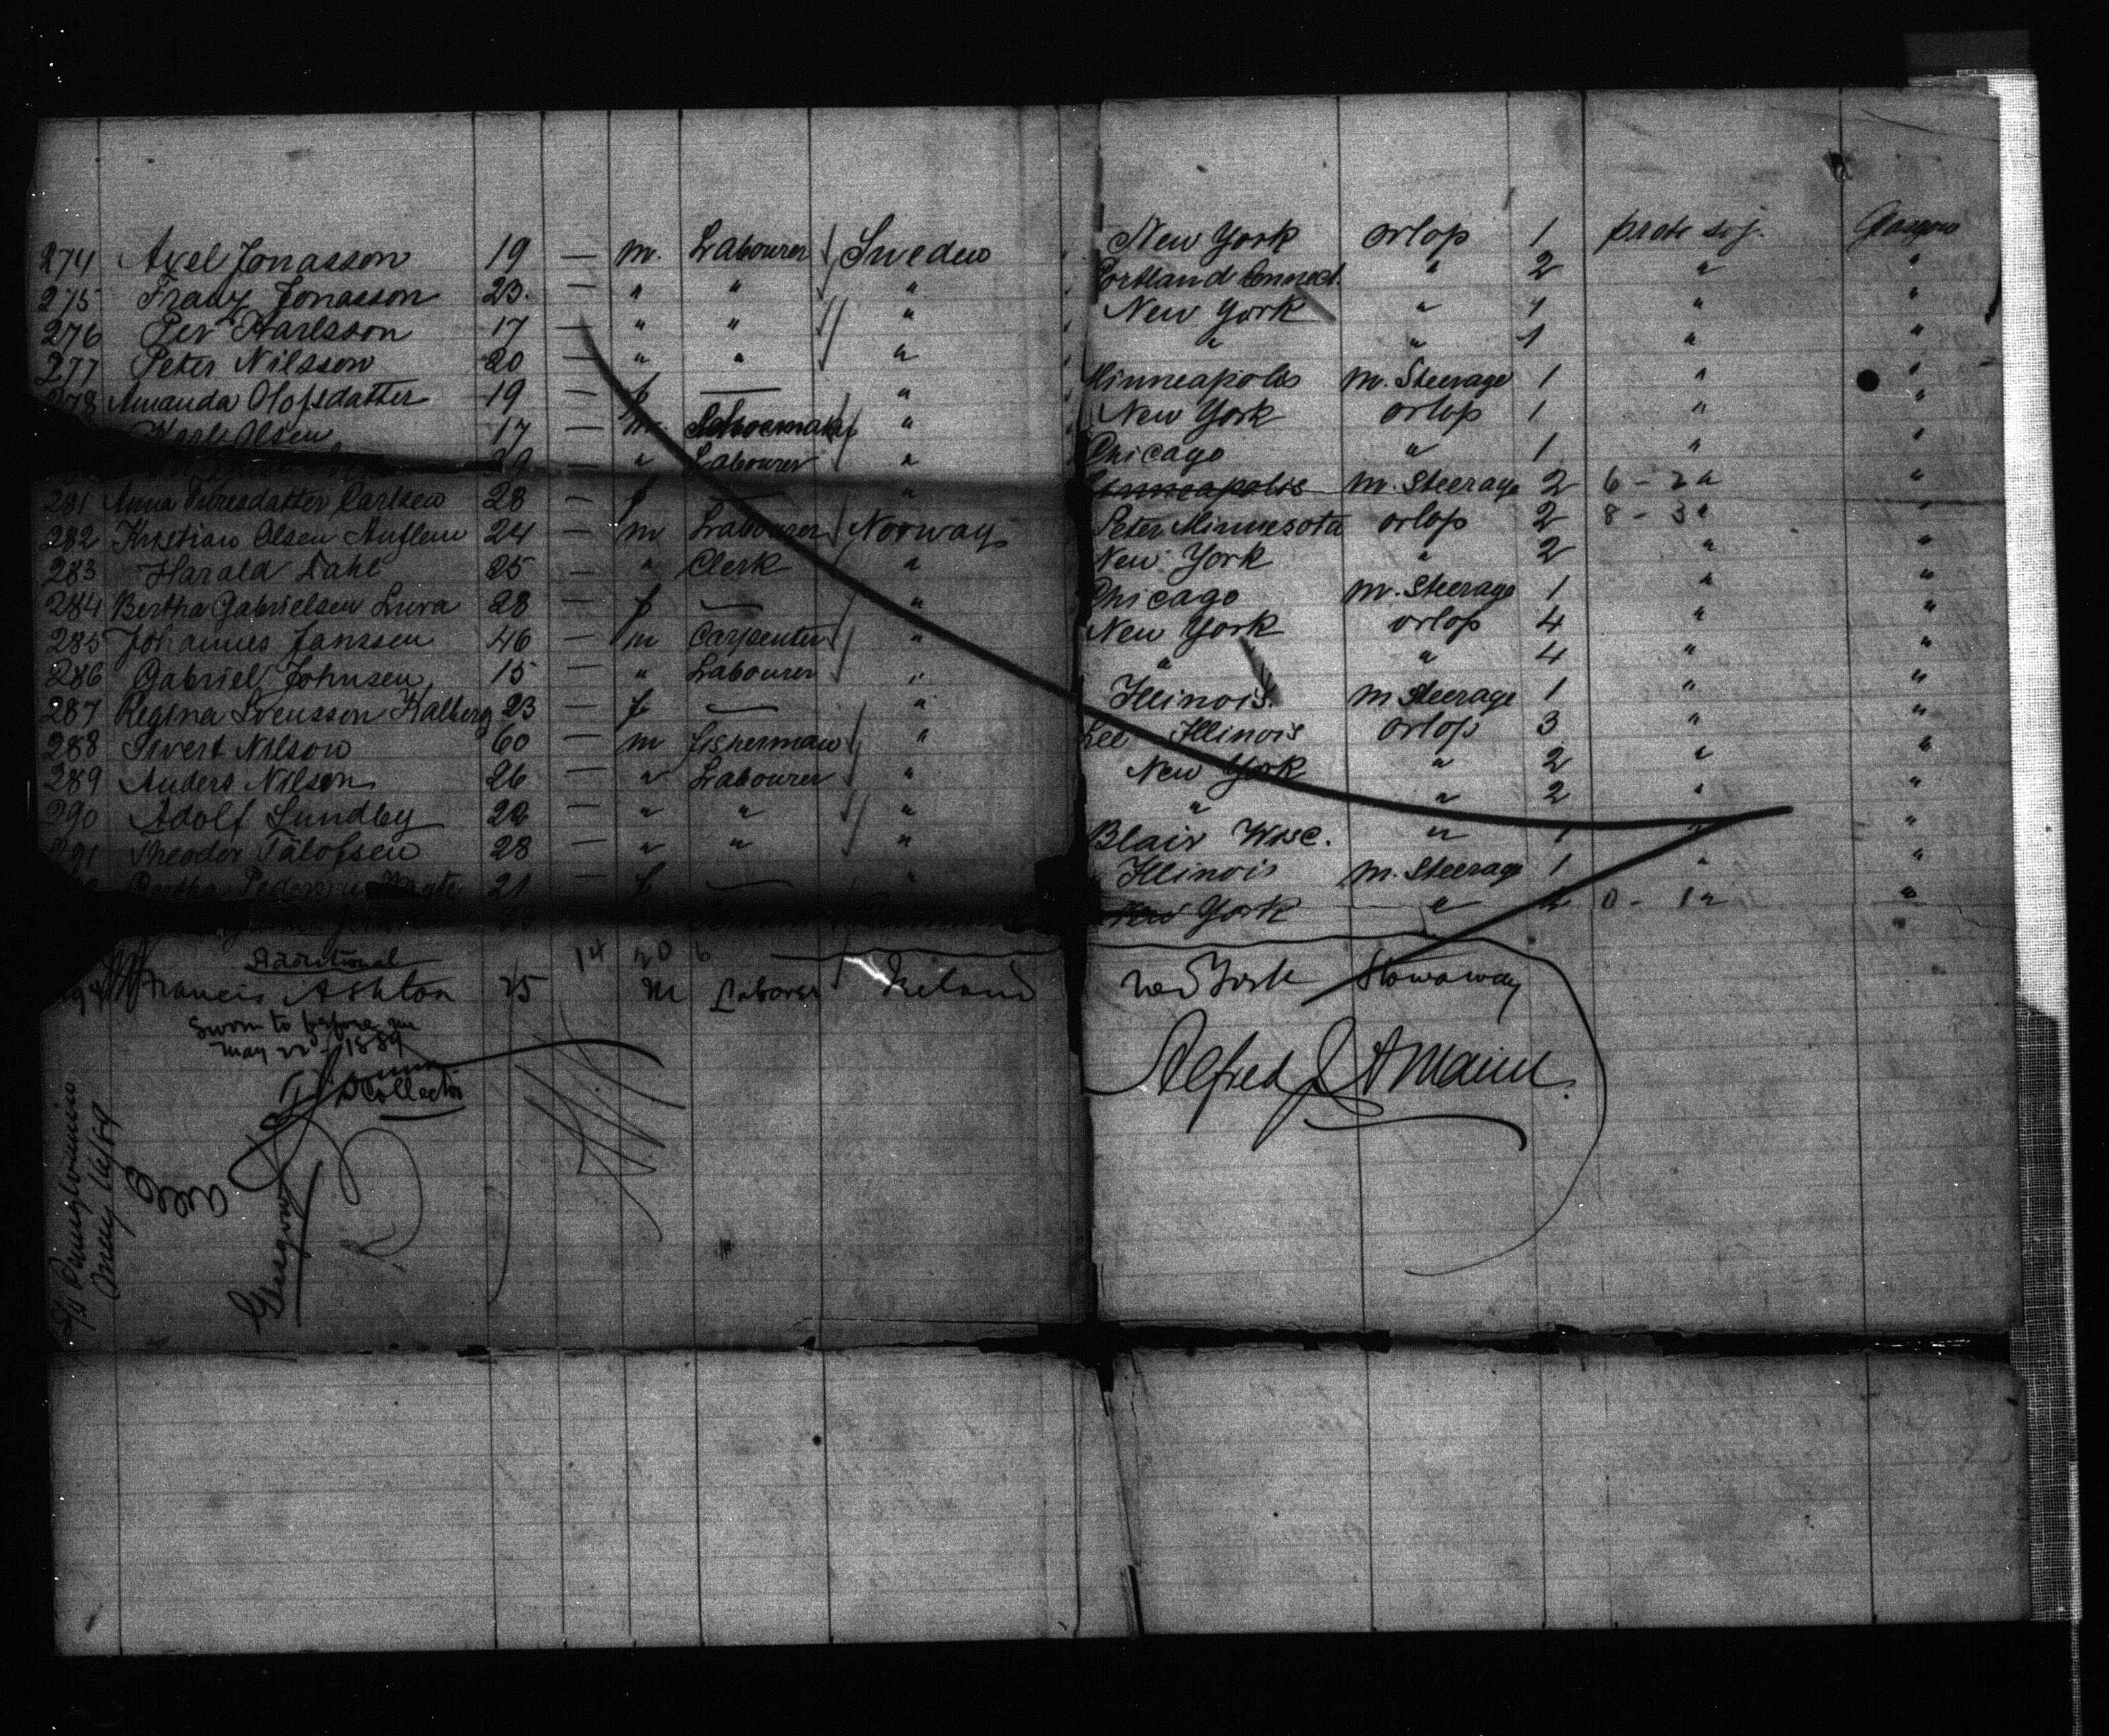 274 Axel Jonasson 19 — m. Labourer Sweden New York orlop 1 Glasgow
275 Franz Jonasson 23. — " " " Portland Connect. " 2 " "
276 Per Karlsson 17 — " " " New York " 1 " "
277 Peter Nilsson 20 — " " " " " 1 " "
278 Amanda Olofsdatter 19 — f — " Minneapolis M. Steerage 1 " "
Karl Olsen 17 — m Schoemaker " New York orlop 1 " "
29 " Labourer " Chicago " 1 " "
281 Anna Carlsen 28 — f — " Minneapolis M. Steerage 2 6 - 2 " "
282 Kristian Olsen 24 — m Labourer Norway Peter Minnesota orlop 2 8 - 3 " "
283 Harald Dahl 25 — " Clerk " New York " 2 " "
284 Bertha Gabrielsen Lura 28 — f — " Chicago M. Steerage 1 " "
285 Johannes Janssen 46 — m Carpenter " New York orlop 4 " "
286 Gabriel Johnsen 15 — " Labourer " " " 4 " "
287 Regina Svensson Kalberg 23 — f — " Illinois. M Steerage 1 " "
288 Sivert Nilson 60 — m fisherman " Lee Illinois orlop 3 " "
289 Anders Nilsen 26 — " Labourer " New York " 2 " "
290 Adolf Lundby 22 — " " " " " 2 " "
291 Theodor Talofsen 28 — " " " Blair Wisc. " 1 " "
Bertha 21 — f — " Illinois M. Steerage 1 " "
New York " 2 0 - 1 " "
Additional 14 20 6
Francis Ashton 25 M Laborer Ireland New York Stowaway
Sworn to before me
May 22d 1889
Collector
Alfred
Glasgow